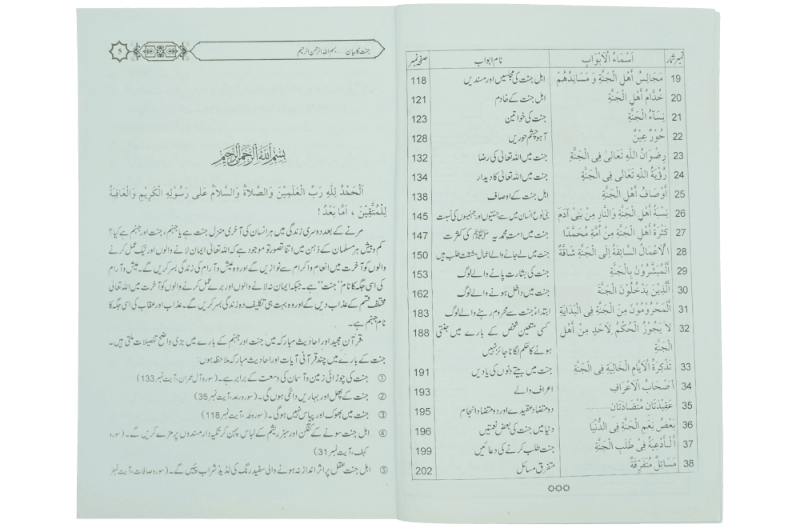 جنت کا بیان .... بسم اللہ الرحمن الرحیم
بِسْمِ اللهِ الرَّحْمٰنِ الرَّحِيْمِ
اَلْحَمْدُ لِلّٰهِ رَبِّ الْعٰلَمِيْنَ وَالصَّلَاةُ وَالسَّلَامُ عَلٰى رَسُوْلِهِ الْكَرِيْمِ وَالْعَاقِبَةُ
لِلْمُتَّقِيْنَ ، اَمَّا بَعْدُ !
مرنے کے بعد دوسری زندگی میں ہر انسان کی آخری منزل جنت ہے یا جہنم، جنت اور جہنم ہے کیا؟
کم و بیش ہر مسلمان کے ذہن میں اتنا تصور تو موجود ہے کہ اللہ تعالیٰ ایمان لانے والوں اور نیک عمل کرنے
والوں کو آخرت میں انعام و اکرام سے نوازیں گے اور وہ عیش و آرام کی زندگی بسر کریں گے۔ عیش و آرام
کی اسی جگہ کا نام "جنت" ہے۔ جبکہ ایمان نہ لانے والوں اور برے عمل کرنے والوں کو آخرت میں اللہ تعالیٰ
مختلف قسم کے عذاب دیں گے اور وہ بہت ہی تکلیف دہ زندگی بسر کریں گے۔ عذاب اور عقاب کی اسی جگہ کا
نام جہنم ہے۔
قرآن مجید اور احادیث مبارکہ میں جنت اور جہنم کے بارے میں بڑی واضح تفصیلات ملتی ہیں۔
جنت کے بارے میں چند قرآنی آیات اور احادیث مبارکہ ملاحظہ ہوں
① جنت کی چوڑائی زمین و آسمان کی وسعت کے برابر ہے۔ (سورہ آل عمران، آیت نمبر 133)
② جنت کے پھل اور بہاریں دائمی ہوں گی۔ (سورہ رعد، آیت نمبر 35)
③ جنت میں بھوک اور پیاس نہیں ہوگی۔ (سورہ طہ، آیت نمبر 118)
④ اہل جنت سونے کے کنگن اور سبز ریشم کے لباس پہن کر تکیہ دار مسندوں پر مزے کریں گے۔ (سورہ
کہف، آیت نمبر 31)
⑤ اہل جنت عقل پر اثر انداز نہ ہونے والی سفید رنگ کی لذیذ شراب پئیں گے۔ (سورہ صافات، آیت نمبر
نمبر شمار اَسْمَاءُ الْاَبْوَابِ نام ابواب صفحہ نمبر
19 مَجَالِسُ اَهْلِ الْجَنَّةِ وَ مَسَانِدُهُمْ اہل جنت کی مجلسیں اور مسندیں 118
20 خُدَّامُ اَهْلِ الْجَنَّةِ اہل جنت کے خادم 121
21 نِسَاءُ الْجَنَّةِ جنت کی خواتین 123
22 حُوْرٌ عِيْنٌ آہو چشم حوریں 128
23 رِضْوَانُ اللهِ تَعَالٰى فِى الْجَنَّةِ جنت میں اللہ تعالیٰ کی رضا 132
24 رُؤْيَةُ اللهِ تَعَالٰى فِى الْجَنَّةِ جنت میں اللہ تعالیٰ کا دیدار 134
25 اَوْصَافُ اَهْلِ الْجَنَّةِ اہل جنت کے اوصاف 138
26 نِسْبَةُ اَهْلِ الْجَنَّةِ وَالنَّارِ مِنْ بَنِى آدَمَ بنی نوع انسان میں سے جنتیوں اور جہنمیوں کی نسبت 145
27 كَثْرَةُ اَهْلِ الْجَنَّةِ مِنْ اُمَّةِ مُحَمَّدٍ ﷺ جنت میں امت محمدیہ ﷺ کی کثرت 147
28 اَلْاَعْمَالُ السَّائِقَةُ اِلَى الْجَنَّةِ شَاقَّةٌ جنت میں لے جانے والے اعمال مشقت طلب ہیں 150
29 اَلْمُبَشَّرُوْنَ بِالْجَنَّةِ جنت کی بشارت پانے والے لوگ 153
30 اَلَّذِيْنَ يَدْخُلُوْنَ الْجَنَّةَ جنت میں داخل ہونے والے لوگ 162
31 اَلْمَحْرُوْمُوْنَ مِنَ الْجَنَّةِ فِى الْبِدَايَةِ ابتداءً جنت سے محروم رہنے والے لوگ 183
32 لَا يَجُوْزُ الْحُكْمُ لِاَحَدٍ مِنْ اَهْلِ کسی متعین شخص کے بارے میں جنتی 188
الْجَنَّةِ ہونے کا حکم لگانا جائز نہیں
33 تَذْكِرَةُ الْاَيَّامِ الْخَالِيَةِ فِى الْجَنَّةِ جنت میں بیتے دنوں کی یادیں 191
34 اَصْحَابُ الْاَعْرَافِ اعراف والے 193
35 عَقِيْدَتَانِ مُتَضَادَّتَانِ دو متضاد عقیدے اور دو متضاد انجام 195
36 بَعْضُ نِعَمِ الْجَنَّةِ فِى الدُّنْيَا دنیا میں جنت کی بعض نعمتیں 196
37 اَلْاَدْعِيَةُ فِى طَلَبِ الْجَنَّةِ جنت طلب کرنے کی دعائیں 199
38 مَسَائِلُ مُتَفَرِّقَةٌ متفرق مسائل 202